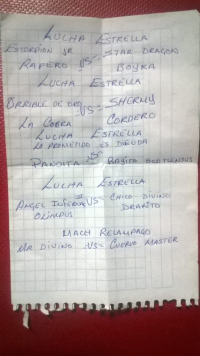 LUCHA ESTRELLA
ESCORPION JR VS STAR DRAGON
RAPERO BOYKA
LUCHA ESTRELLA
DE ORO VS SHERMY
LA COBRA CORDERO
LUCHA ESTRELLA
LO PROMETIDO ES DEUDA
PANDITA VS RAYITO
LUCHA ESTRELLA
ANGEL INFERNAL VS CHICO DIVINO
OLIMPUS DRAKITO
MACH RELAMPAGO
MR DIVINO VS CUERVO MASTER